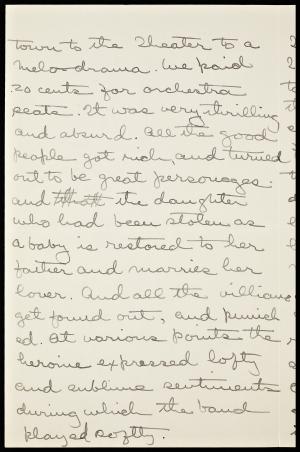 town to the Theater to a
melo-drama. We paid
20 cents for orchestra
seats. It was very thrilling
and absurd. All the good
people got rich, and turned
out to be great personages.
and the daughter
who had been stolen as
a baby is restored to her
father and marries her
lover. And all the villians
get found out, and punish
ed. At various points the
heroine expressed lofty
and sublime sentiments
during which the band
played softly.